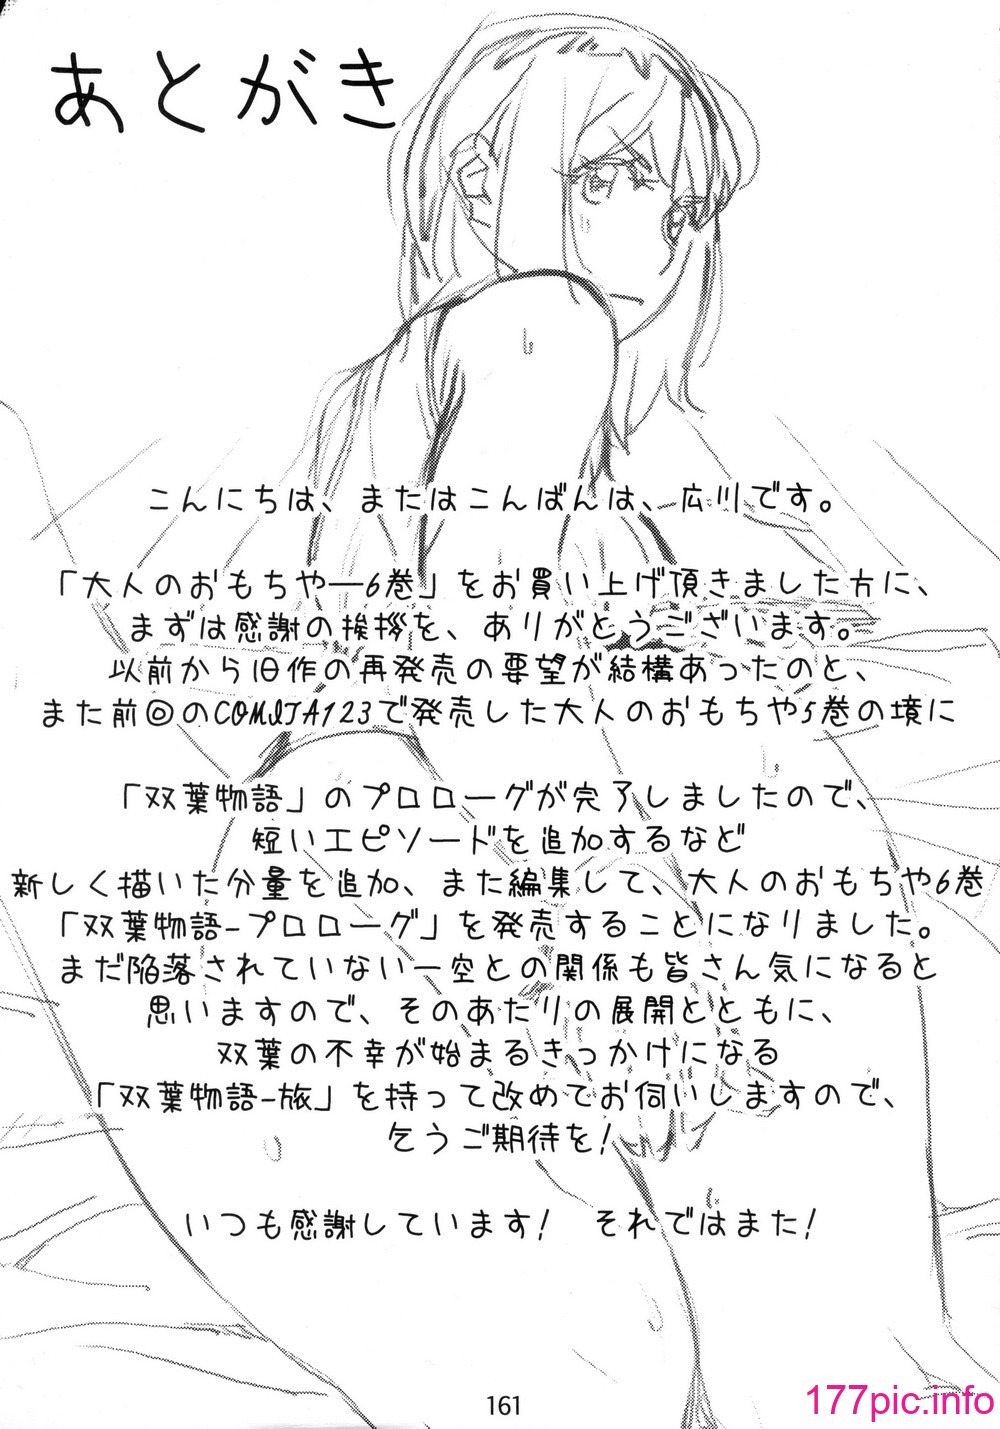 あとがき
こんにちは、またはこんばんは、広川です。
「大人のおもちや―6巻」をお買い上げ頂きました方に、
まずは感謝の挨拶を、ありがとうございます。
以前から旧作の再発売の要望が結構あったのと、
また前◎のCOMITA123で発売した大人のおもちや5巻の境に
「双葉物語」のプロローグが完了しましたので、
短いエピソードを追加するなど
新しく描いた分量を追加、また編集して、大人のおもちや6巻
「双葉物語-プロローグ」を発売することになりました。
まだ陥落されていない一空との関係も皆さん気になると
思いますので、そのあたりの展開とともに、
双葉の不幸が始まるきっかけになる
「双葉物語-旅」を持って改めてお伺いしますので、
乞うご期待を!
いつも感謝しています! それではまた!
161
177pic.info